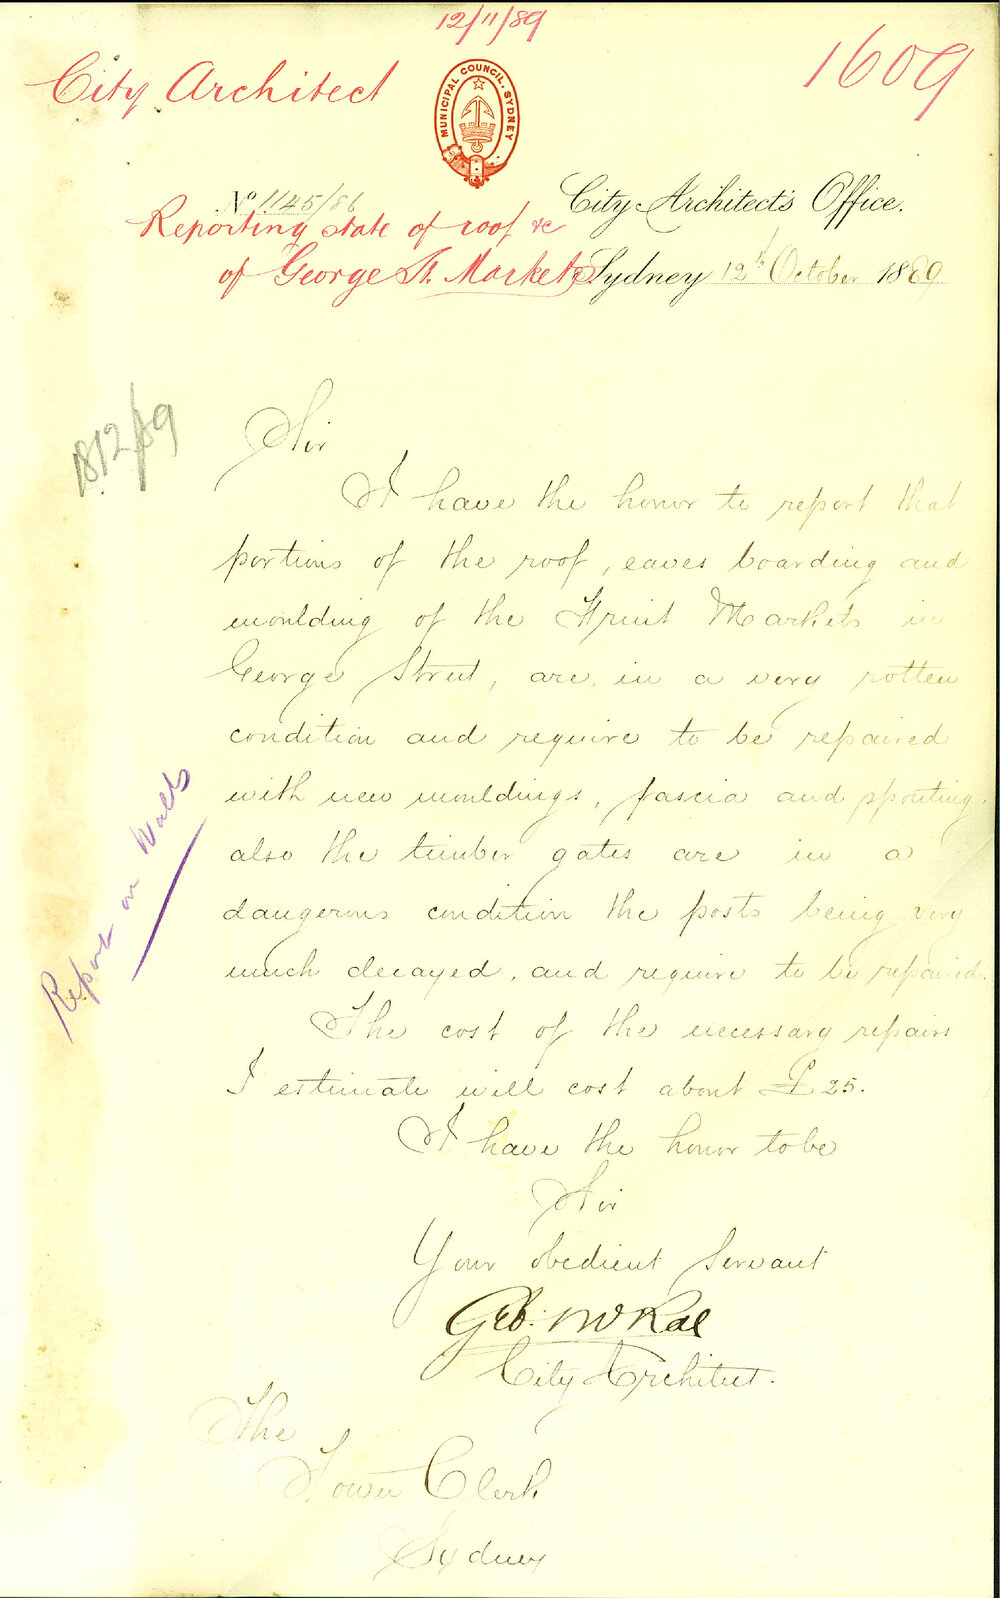 12/11/89
City Architect
1609
MUNICIPAL COUNCIL. SYDNEY
No 1145/86
City Architect's Office.
Reporting state of roof &c
of George St. Markets
Sydney 12th October 1889
1812/89
Sir
I have the honor to report that
portions of the roof, eaves boarding and
moulding of the Fruit Markets in
George Street, are in a very rotten
condition and require to be repaired
with new mouldings, fascia and spouting,
also the timber gates are in a
dangerous condition the posts being very
much decayed, and require to be repaired.
Report on Walls
The cost of the necessary repairs
I estimate will cost about £25.
I have the honor to be
Sir
Your obedient Servant
Geo: McRae
City Architect.
The
Town Clerk
Sydney